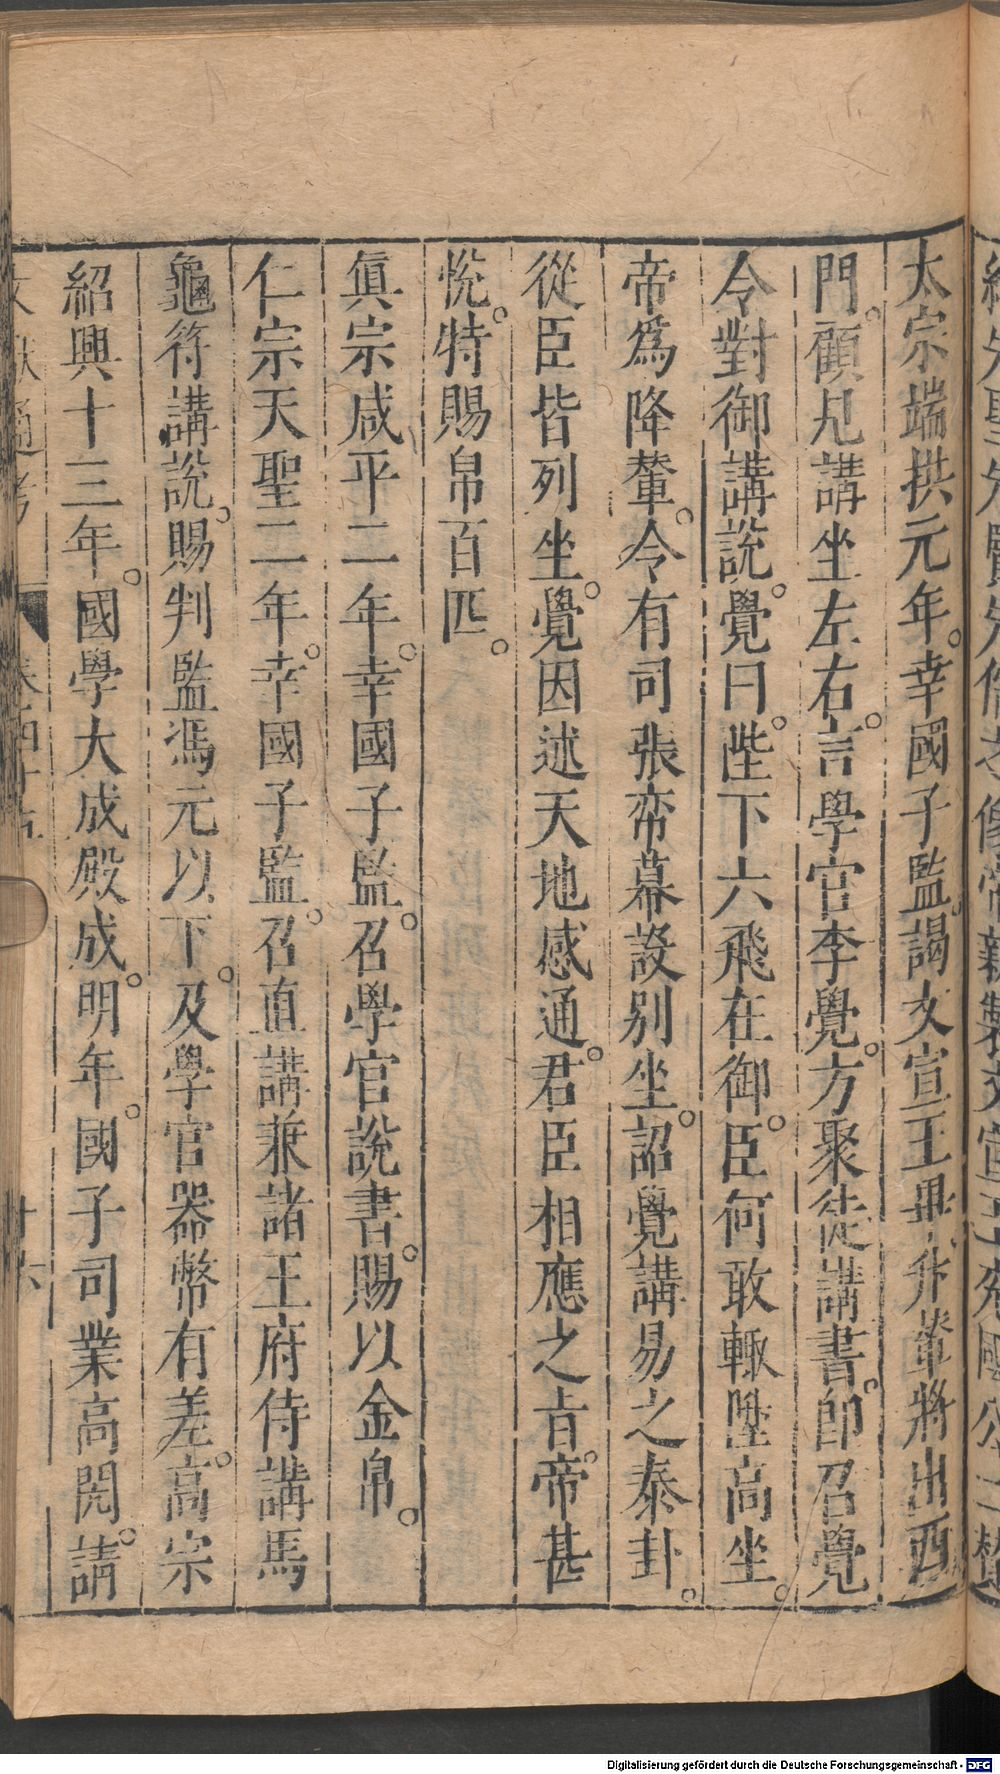 太宗端拱元年。幸國子監。謁文宣王畢。升輦將出西
門。顧見講坐左右。言學官李覺。方聚徒講書。卽召覺
令對御講說。覺曰。陛下六飛在御。臣何敢輙陞高坐。
帝爲降輦。令有司張帟幕設別坐。詔覺講易之泰卦。
從臣皆列坐。覺因述天地感通。君臣相應之旨。帝甚
悅。特賜帛百匹。
眞宗咸平二年。幸國子監。召學官說書。賜以金帛。
仁宗天聖二年。幸國子監。召直講兼諸王府侍講馬
龜符講說。賜判監馮元以下。及學官器幣有差。高宗
紹興十三年。國學大成殿成。明年。國子司業高閌。請
Digitalisierung gefördert durch die Deutsche Forschungsgemeinschaft - DFG